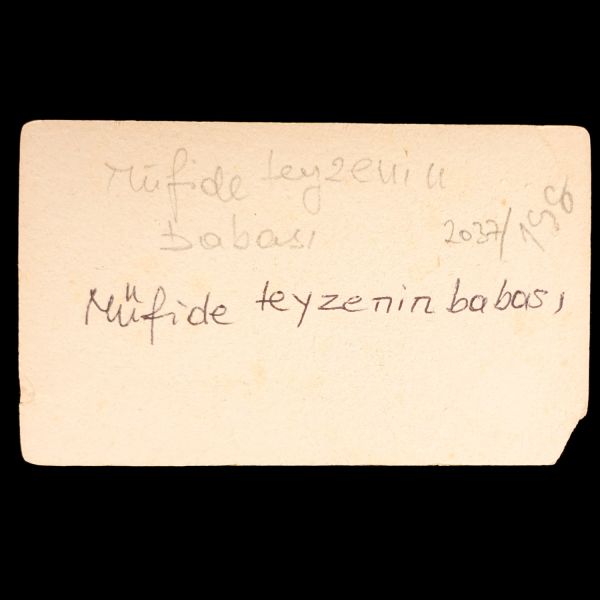 Müfide teyzenin
babası
2037/
Müfide teyzenin babası